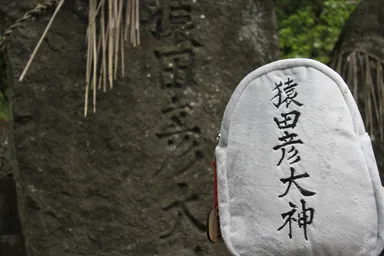 猿田彦大
猿田彦大神